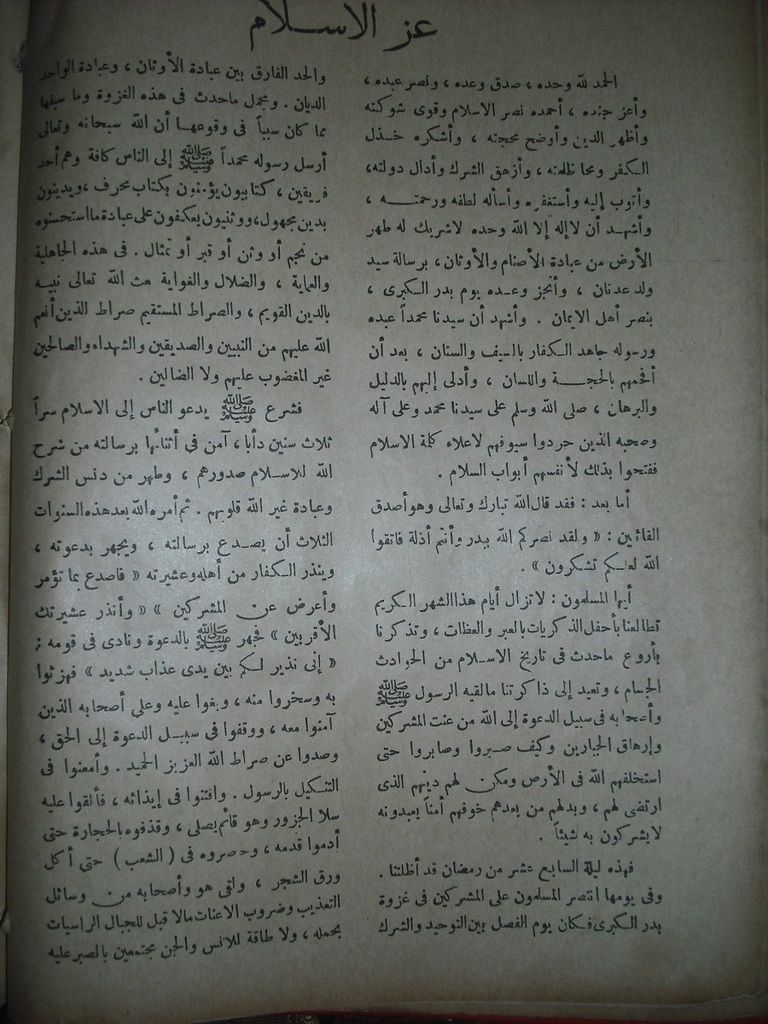 عز الاسلام
الحمد لله وحده ، صدق وعده ، ونصر عبده ،
وأعز جنده ، أحمده نصر الاسلام وقوى شوكته
وأظهر الدين وأوضح محجته ، وأشكره خذل
الكفر ومحا ظلمته ، وأزهق الشرك وأدال دولته،
وأتوب إليه وأستغفره وأسأله لطفه ورحمته ،
وأشهد أن لاإله إلا الله وحده لاشريك له طهر
الأرض من عبادة الأصنام والأوثان، برسالة سيد
ولد عدنان ، وأنجز وعده يوم بدر الكبرى ،
بنصر أهل الايمان . وأشهد أن سيدنا محمداً عبده
ورسوله جاهد الكفار بالسيف والسنان ، بعد أن
أفحمهم بالحجة واللسان ، وأدلى إليهم بالدليل
والبرهان ، صلى الله وسلم على سيدنا محمد وعلى آله
وصحبه الذين جردوا سيوفهم لاعلاء كلمة الاسلام
ففتحوا بذلك لأنفسهم أبواب السلام .
أما بعد : فقد قال الله تبارك وتعالى وهو أصدق
القائلين : « ولقد نصركم الله ببدر وأنتم أذلة فاتقوا
الله لعلكم تشكرون » .
أيها المسلمون : لاتزال أيام هذا الشهر الكريم
تطالعنا بأحفل الذكريات بالعبر والعظات ، وتذكرنا
بأروع ماحدث فى تاريخ الاسلام من الحوادث
الجسام ، وتعيد إلى ذاكرتنا مالقيه الرسول ﷺ
وأصحابه فى سبيل الدعوة إلى الله من عنت المشركين
وإرهاق الجبارين وكيف صبروا وصابروا حتى
استخلفهم الله فى الأرض ومكن لهم دينهم الذى
ارتضى لهم ، وبدلهم من بعدهم خوفهم أمناً يعبدونه
لايشركون به شيئاً .
فهذه ليلة السابع عشر من رمضان قد أظلتنا .
وفى يومها انتصر المسلمون على المشركين فى غزوة
بدر الكبرى فكان يوم الفصل بين التوحيد والشرك
والحد الفارق بين عبادة الأوثان ، وعبادة الواحد
الديان . ومجمل ماحدث فى هذه الغزوة وما سبقها
مما كان سبباً فى وقوعها أن الله سبحانه وتعالى
أرسل رسوله محمداً ﷺ إلى الناس كافة وهم أحد
فريقين ، كتابيون يؤمنون بكتاب محرف ، ويدينون
بدين مجهول، ووثنيون يعكفون على عبادة ما استحسنوه
من نجم أو وثن أو قبر أو تمثال . فى هذه الجاهلية
والعماية ، والضلال والغواية بعث الله تعالى نبيه
بالدين القويم ، والصراط المستقيم صراط الذين أنعم
الله عليهم من النبيين والصديقين والشهداء والصالحين
غير المغضوب عليهم ولا الضالين .
فشرع ﷺ يدعو الناس إلى الاسلام سراً
ثلاث سنين دأبا ، آمن فى أثنائها برسالته من شرح
الله للاسلام صدورهم ، وطهر من دنس الشرك
وعبادة غير الله قلوبهم . ثم أمره الله بعد هذه السنوات
الثلاث أن يصدع برسالته ، ويجهر بدعوته ،
وينذر الكفار من أهله وعشيرته « فاصدع بما تؤمر
وأعرض عن المشركين » « وأنذر عشيرتك
الأقربين » فجهر ﷺ بالدعوة ونادى فى قومه :
« إنى نذير لكم بين يدى عذاب شديد » فهزئوا
به وسخروا منه ، وبغوا عليه وعلى أصحابه الذين
آمنوا معه ، ووقفوا فى سبيل الدعوة إلى الحق ،
وصدوا عن صراط الله العزيز الحميد . وأمعنوا فى
التنكيل بالرسول . وافتنوا فى إيذائه ، فألقوا عليه
سلا الجزور وهو قائم يصلى ، وقذفوه بالحجارة حتى
أدموا قدمه ، وحصروه فى ( الشعب ) حتى أكل
ورق الشجر ، ولقى هو وأصحابه من وسائل
التعذيب وضروب الاعنات مالا قبل للجبال الراسيات
بحمله ، ولا طاقة للانس والجن مجتمعين بالصبر عليه